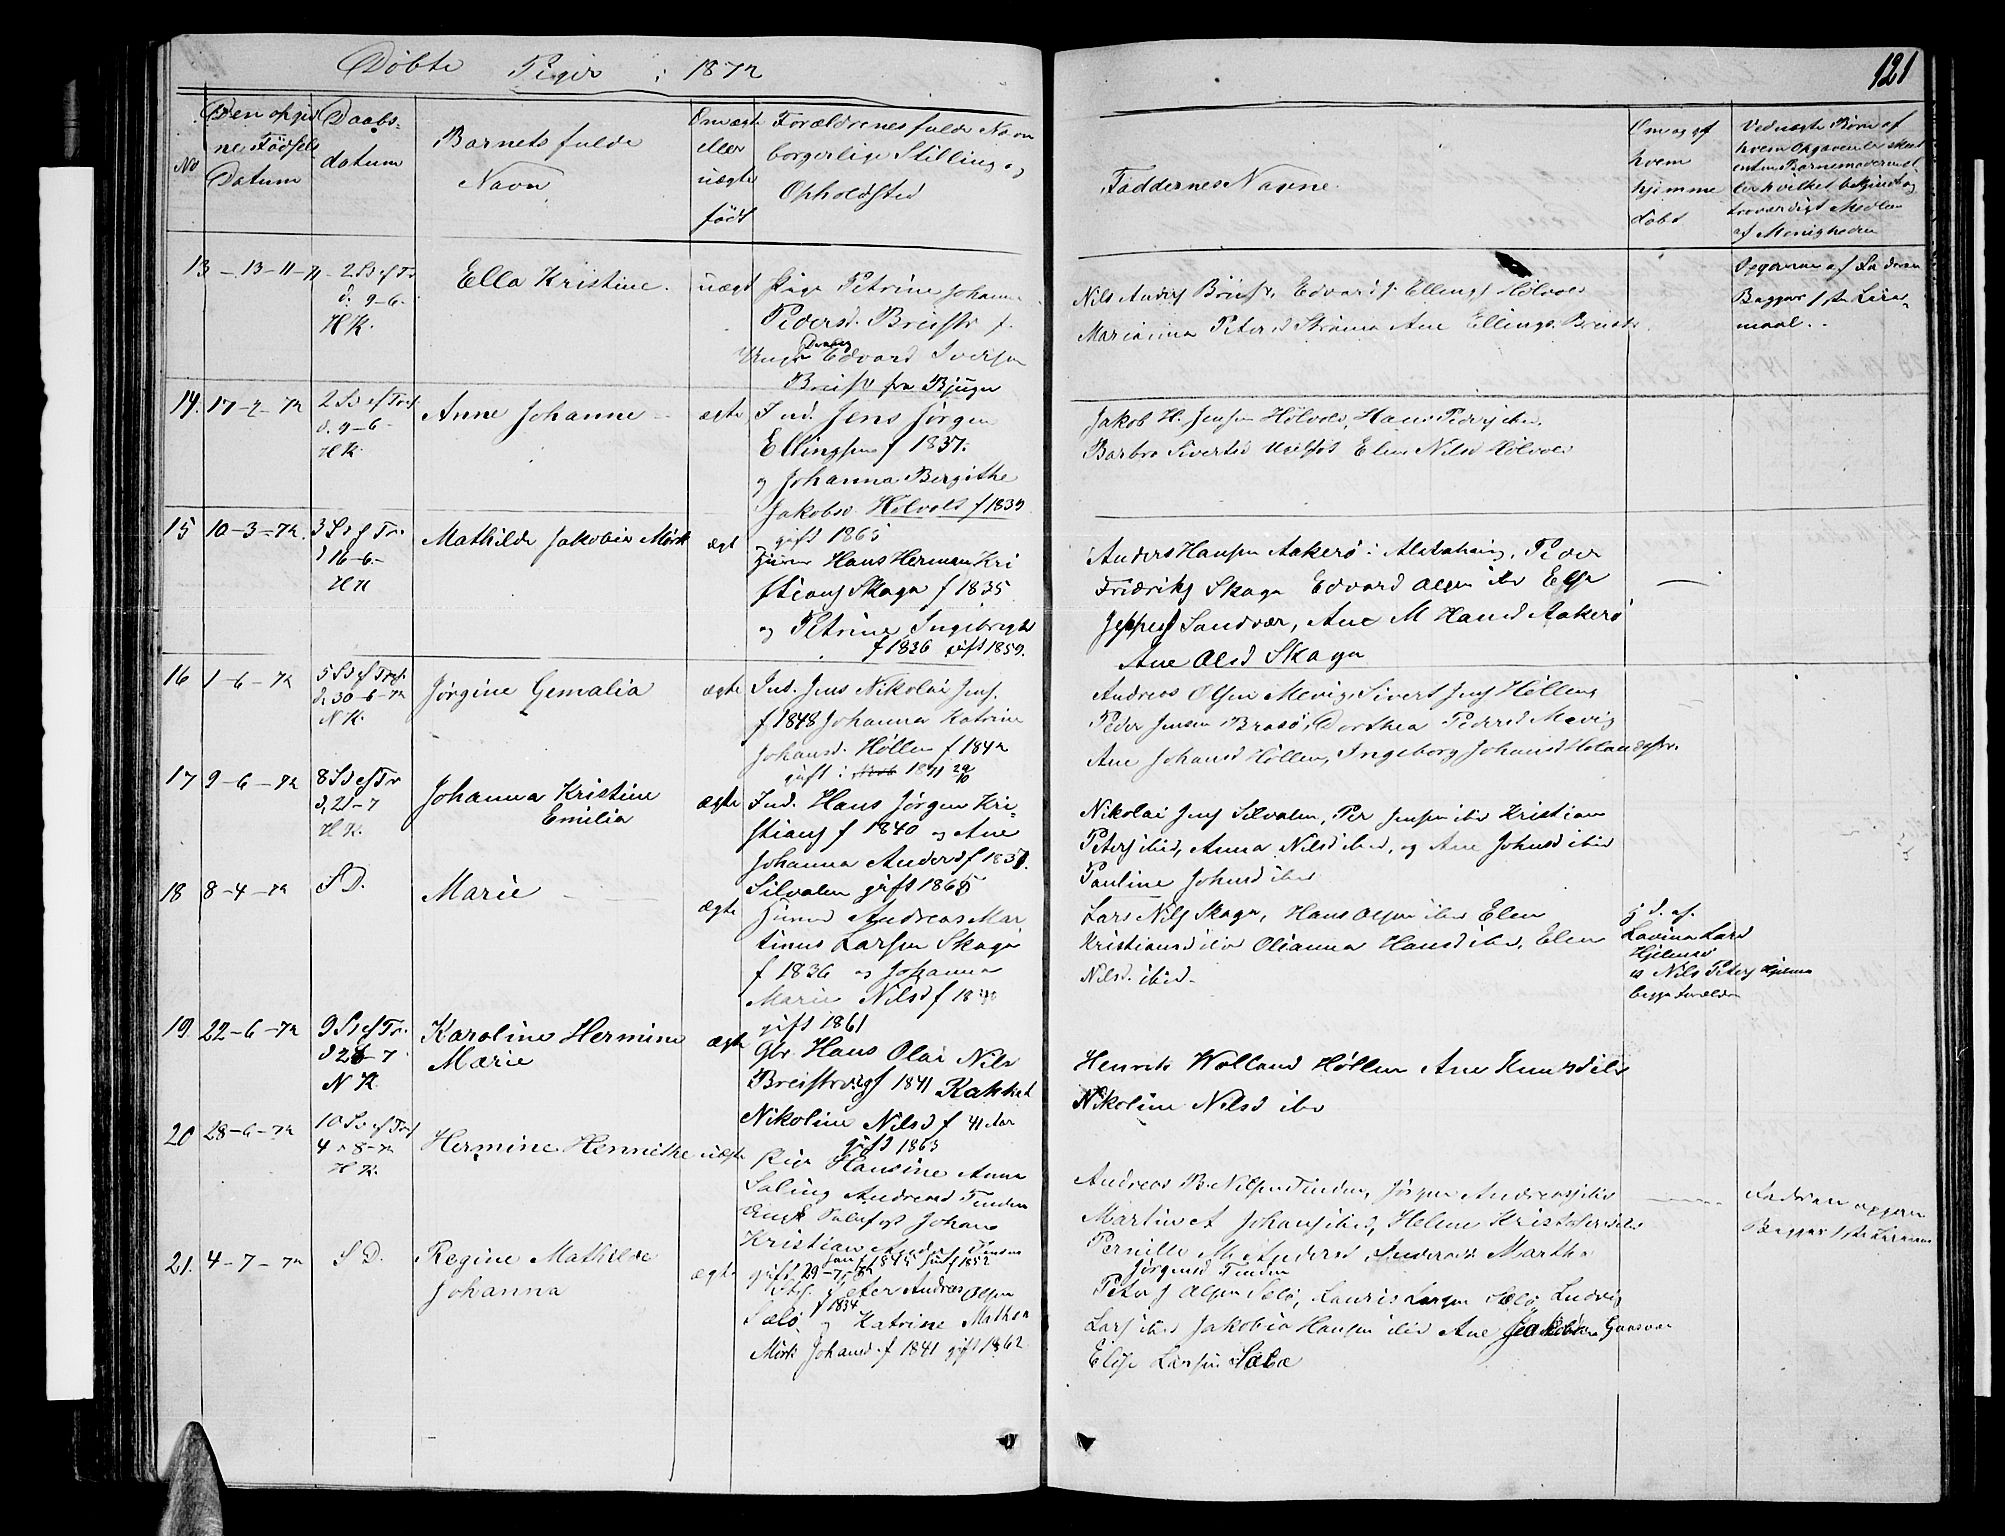 Døbte Piger i 1872
121
No
Den opgivne Fødsels Datum
Daabsdatum
Barnets fulde Navn
Om ægte eller uægte født
Forældrenes fulde Navn borgerlige Stilling og Opholdsted
Faddernes Navne.
Om og af hvem hjemmedøbt
Ved uægte Børn af hvem Opgaven er skeet enten Barnemoderen eller hvilket bekjendt og troværdigt Medlem af Menigheden
13 – 13–11–71 – 2 S ef Tr
d. 9–6.
H K.
Ella Kristine.
uægt
Pige Petrine Johanna
Pedersd. Breistr f.
Ungk Edvard Iversen
Breistr fra Bjugn
Nils Anders Breistr, Edvard J. Ellings Hølvold
Marianna Petersd Strøma Ane Ellingsd. Breistr
Opgaven af Faderen
Begges 1ste Leiermaal.
14. 17–2–72
2 S ef Tref
d. 9–6–
H K.
Anne Johanne –
ægte
Ind. Jens Jørgen
Ellingsen f 1837.
og Johanna Bergithe
Jakobsd Hølvold f 1839
gift 1865
Jakob H. Jensen Hølvold, Hans Peders ibid.
Barbro Sivertsd Elen Nilsd Hølvold
15 10–3–72
3 S ef Tr.
d 16–6–
H K
Mathilde Jakobia Mørk
ægt
Hans Herman Kri
stians Skaga f 1835
og Petrine Ingebrigtsd
f 1836 gift 1859.
Anders Hansen Aakerø i Alstahaug, Peder
Fredriks Skaga Edvard Olsen ibd Else
Jeppesd Sandvær, Ane M Hansd Aakerø
Ane Olsd Skaga
16 1–6–72
5 S ef Tref.
d. 30–6–72
N K.
Jørgine Gemalia
ægte
Ind. Jens Nikolai Jens.
f 1848 Johanna Katrine
Johansd. Høllen f 1842
gift i 1871 29/10
Andreas Olsen Mevig, Sivert Jens Hølleng
Peder Jensen Brasø, Dorthea Pedersd Mevig
Ane Johansd Høllen, Ingeborg Johansd
17 9–6–72
8 S ef Tr
d, 21–7
H K.
Johanna Kristine
Emilia
ægte
Ind. Hans Jørgen Kri–
stians f 1840 og Ane
Johanna Andersd f 1837.
Silvalen gift 1865
Nikolai Jens Silvalen, Per Jensen ibd Kristian
Peters ibid, Anna Nilsd ibid, og Ane Johnsd ibid
Pauline Johnsd ibid
18 8–4–72
S D.
Marie
ægte
Andreas Mar
tinus Larsen Skaga
f 1836 og Johanna
Marie Nilsd f 1840
gift 1861
Lars Nils Skaga, Hans Olsen ibid Elen
Kristiansd ibid Olianna Hansd ibid, Elen
Nilsd. ibid.
hj d. af.
Lovina Larsd
Hjelmsø
og Nils Peters Hjelms
begge Forældre
19 22–6–72
9 S ef Tr.
d 28–7
N K
Karoline Hermine
Marie
ægte
Gbr. Hans Olai Nils
Breistrvig f 1841 Rakkel
Nikoline Nilsd f 41 Aar
gift 1863
Henrik Wolland Høllen Ane Knutsd ibd
Nikoline Nilsd ibd
20 28–6–72
10 S ef Tref
4–8–72
H K.
Hermine Henrikke
uægte
Pige Hansine Anna
Saling Andreasd Tinden
Johans
Kristian
Andreas B. Nilsen Tinden, Jørgen Andreas ibid
Martin A Johans ibid, Helene Kristofersd ibd
Pernille M Martha
Jørgensd Tinden
Faderen opgiven
Begges 1ste Leierm
21. 4–7–72
S D.
Regine Mathilde
Johanna
ægte
Peter Andreas Olsen
Sælø f 1834 og Katrine Mathea
Mørk Johansd f 1841 gift 1862
Peter J Olsen Selø, Laurits Larsen Selø, Ludvig
Lars ibid Jakobia Hansen ibid Ane Jakobsen Gaasvær
Elise Larsen Sælø